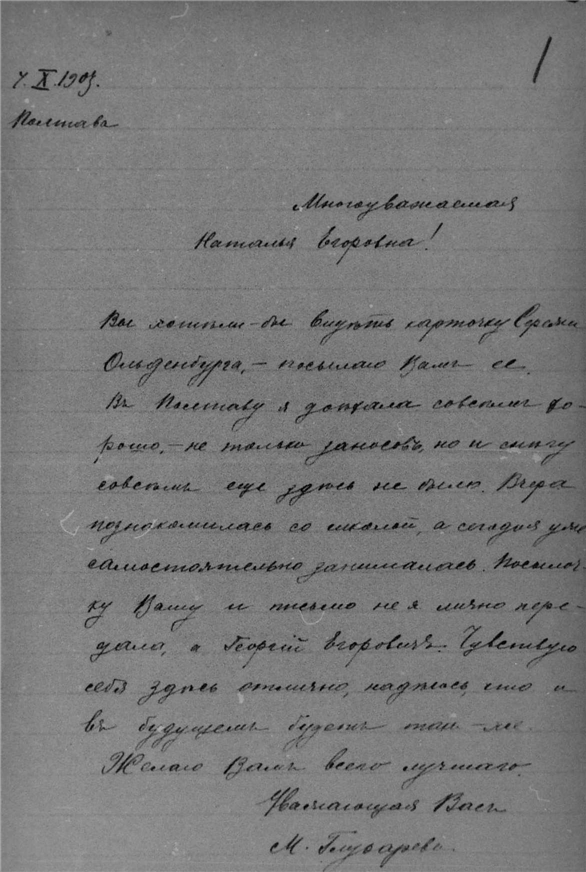 1
7. X. 1903.
Полтава
Многоуважаемая
Наталья Егоровна!
Вы хотѣли-бы видѣть карточку Сережи
Ольденбурга, – посылаю Вамъ ее.
Въ Полтаву я доѣхала совсѣмъ хо-
рошо, – не только заносовъ, но и снѣгу
совсѣмъ еще здѣсь не было. Вчера
познакомилась со школой, а сегодня уже
самостоятельно занималась. Посылоч-
ку Вашу и письмо не я лично пере-
дала, а Георгій Егоровичъ. Чувствую
себя здѣсь отлично, надѣюсь, что и
въ будущемъ будетъ так-же.
Желаю Вамъ всего лучшаго.
Уважающая Васъ
М.